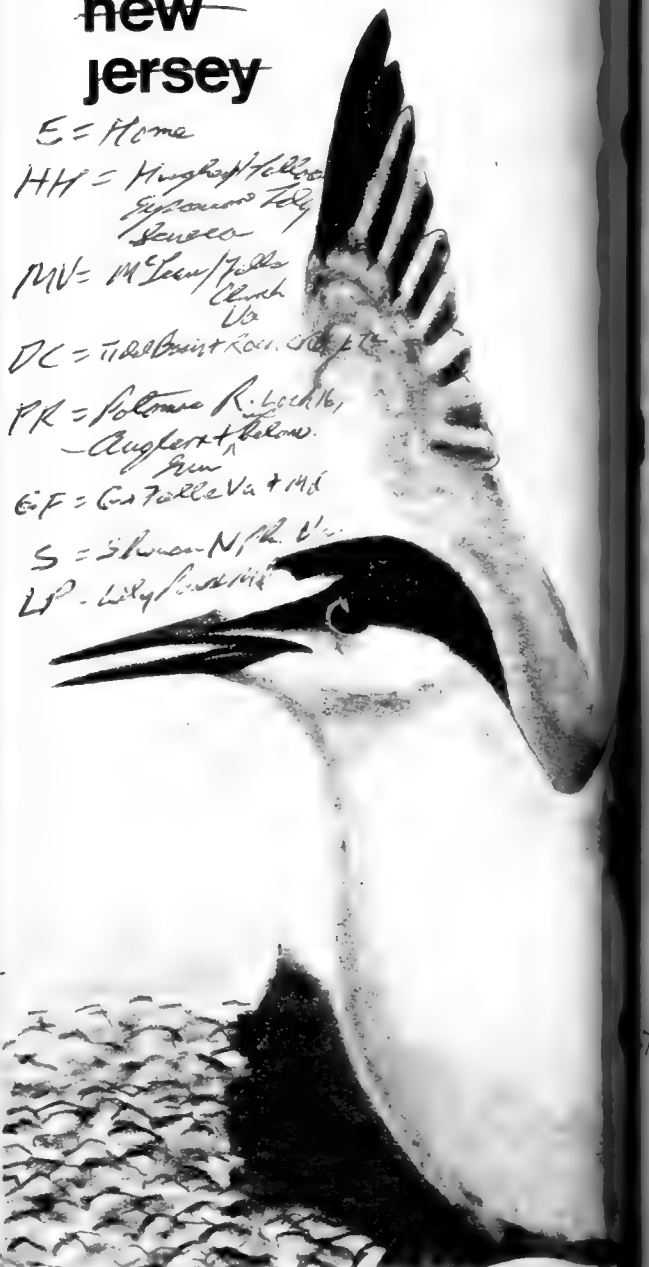 new
jersey
E = Home
HH = Hughes/Hollow
Sycamore
Seneca
MV = McLean/Falls
Church
Va
DC = Tidal Basin +
PR = Potomac R. Lock 16,
- Anglers + below
GF = Gr Falls Va + Md
S =
LP - Lily Pons Md